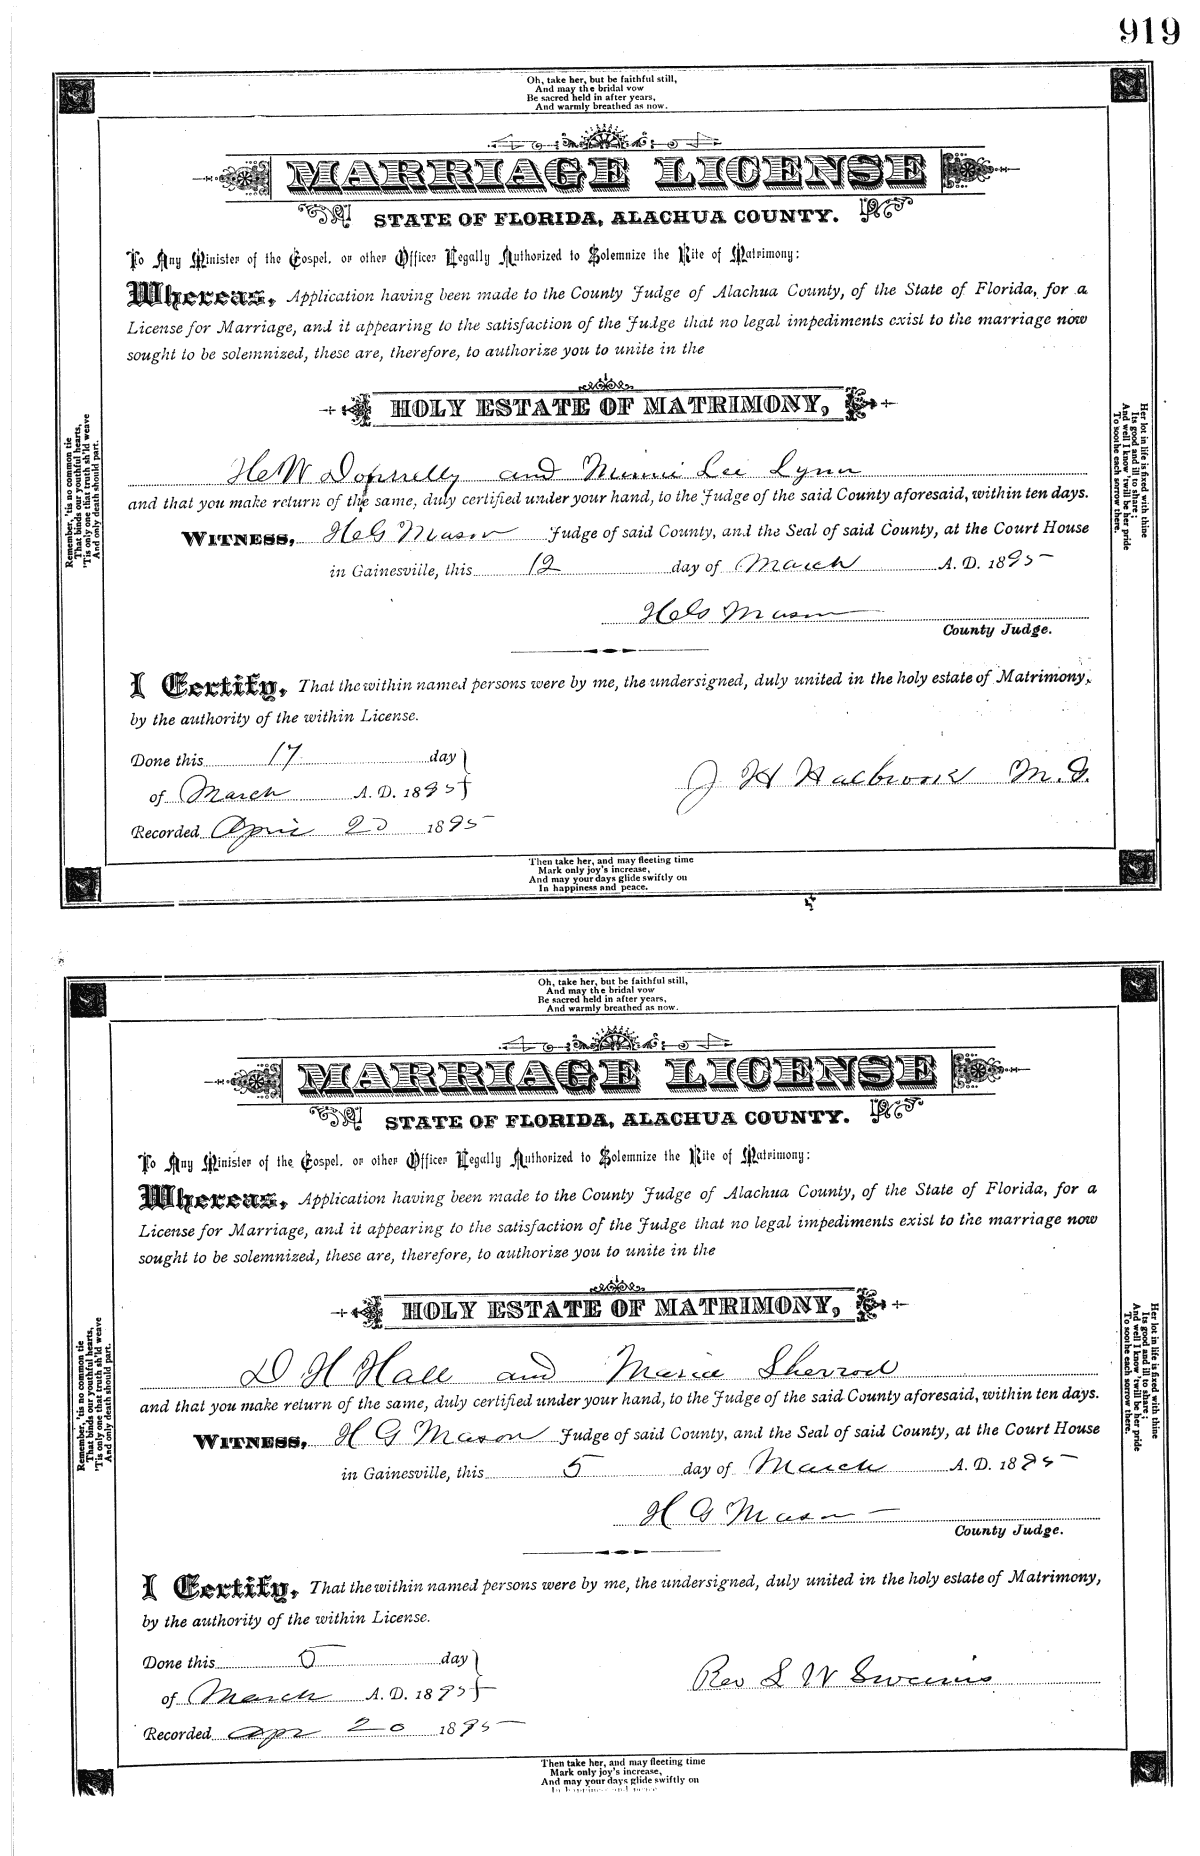 919
Oh, take her, but be faithful still,
And may the bridal vow
Be sacred held in after years,
And warmly breathed as now.
MARRIAGE LICENSE
STATE OF FLORIDA, ALACHUA COUNTY.
To Any Minister of the Gospel, or other Officer Legally Authorized to Solemnize the Rite of Matrimony:
Whereas, Application having been made to the County Judge of Alachua County, of the State of Florida, for a
License for Marriage, and it appearing to the satisfaction of the Judge that no legal impediments exist to the marriage now
sought to be solemnized, these are, therefore, to authorize you to unite in the
HOLY ESTATE OF MATRIMONY,
H W Donnelly and Minni Lee Lynn
and that you make return of the same, duly certified under your hand, to the Judge of the said County aforesaid, within ten days.
WITNESS, H G Mason Judge of said County, and the Seal of said County, at the Court House
in Gainesville, this 12 day of March A. D. 1895
H G Mason
County Judge.
I Certify, That the within named persons were by me, the undersigned, duly united in the holy estate of Matrimony,
by the authority of the within License.
Done this 17 day
of March A. D. 1895
J H M. G.
Recorded April 20 1895
Then take her, and may fleeting time
Mark only joy's increase,
And may your days glide swiftly on
In happiness and peace.
Remember, 'tis no common tie
That binds our youthful hearts,
'Tis only one that truth sh'ld weave
And only death should part.
Her lot in life is fixed with thine
Its good and ill to share;
And well I know 'twill be her pride
To soothe each sorrow there.
Oh, take her, but be faithful still,
And may the bridal vow
Be sacred held in after years,
And warmly breathed as now.
MARRIAGE LICENSE
STATE OF FLORIDA, ALACHUA COUNTY.
To Any Minister of the Gospel, or other Officer Legally Authorized to Solemnize the Rite of Matrimony:
Whereas, Application having been made to the County Judge of Alachua County, of the State of Florida, for a
License for Marriage, and it appearing to the satisfaction of the Judge that no legal impediments exist to the marriage now
sought to be solemnized, these are, therefore, to authorize you to unite in the
HOLY ESTATE OF MATRIMONY,
D H Hall and Maria Sherrod
and that you make return of the same, duly certified under your hand, to the Judge of the said County aforesaid, within ten days.
WITNESS, H G Mason Judge of said County, and the Seal of said County, at the Court House
in Gainesville, this 5 day of March A. D. 1895
H G Mason
County Judge.
I Certify, That the within named persons were by me, the undersigned, duly united in the holy estate of Matrimony,
by the authority of the within License.
Done this 5 day
of March A. D. 1895
Rev S W
Recorded Apr 20 1895
Then take her, and may fleeting time
Mark only joy's increase,
And may your days glide swiftly on
In happiness and peace
Remember, 'tis no common tie
That binds our youthful hearts,
'Tis only one that truth sh'ld weave
And only death should part.
Her lot in life is fixed with thine
Its good and ill to share;
And well I know 'twill be her pride
To soothe each sorrow there.